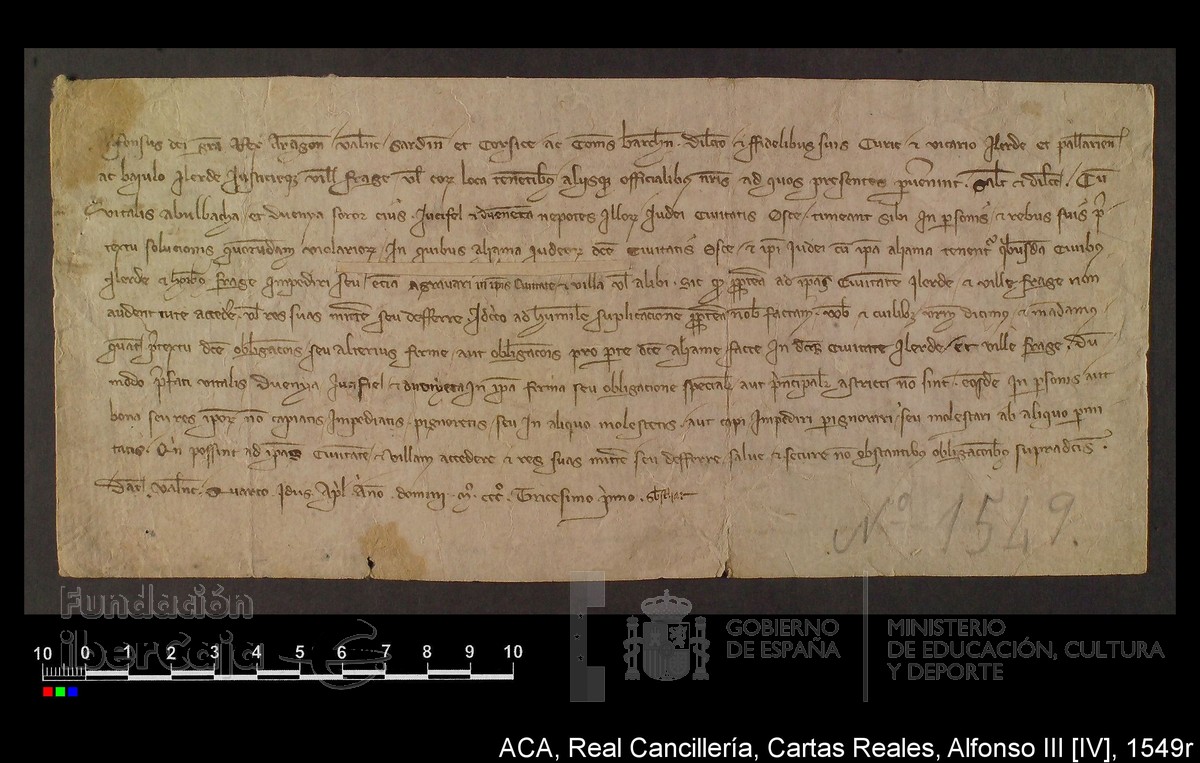 Alfonsus dei gra Rex Aragon Valenc Sardin et Corsice ac Comes barchn dilcis et fidelibus suis Curie et vicario Ilerde et pallarien
ac baiulo Ilerde Justicieqz ville frage vel eorz loca tenentibus aliisqz officialibus nris ad quos presentes pervenint Salt et dilcc Cu
vitalis abulbacha et duenya soror eius Jucifel et duenneta nepotes illorz Judei Civitatis Osce timeant sibi in personis et rebus suis p
textu solucionis quorundam violariorz in quibus aliama iudeorz dce Civitatis Osce et ipi Judei cu ipa aliama tenentr quibusda civibus
Ilerde et hoibus frage impediri seu etia agravari in ipis Civitate et villa vel alibi sic qz ppterea ad ipas Civitate Ilerde et ville frage non
audent tute accede vel res suas mitte seu defferre Idcirco ad humile suplicacione ppterea nob factam vob et cuilibz vrm dicimus et mandamus
quat pretextu dce obligacois seu alterius ferme aut obligacois pro parte dce aliame facte in dcis Civitate Ilerde et ville frage du
mdo prefati vitalis duenya Jucifiel et duenyeta in ipa firma seu obligacione specialr aut principalr astricti no sint eosde in psonis aut
bona seu res ipor no capiatis impediatis pignoretis seu in aliquo molestetis aut capi impediri pignorari seu molestari ab aliquo pmi
tatis Qin possint ad ipas Civitate et villam accedere et res suas mitte seu defferre salve et secure no obstantibus obligacoibus supradcis
Dat Valenc Quarto Idus Apl Anno domini Mo CCCo Tricesimo primo
No 1549.
Fundación
iberCaja
10 0 1 2 3 4 5 6 7 8 9 10
GOBIERNO
DE ESPAÑA
MINISTERIO
DE EDUCACIÓN, CULTURA
Y DEPORTE
ACA, Real Cancillería, Cartas Reales, Alfonso III [IV], 1549r